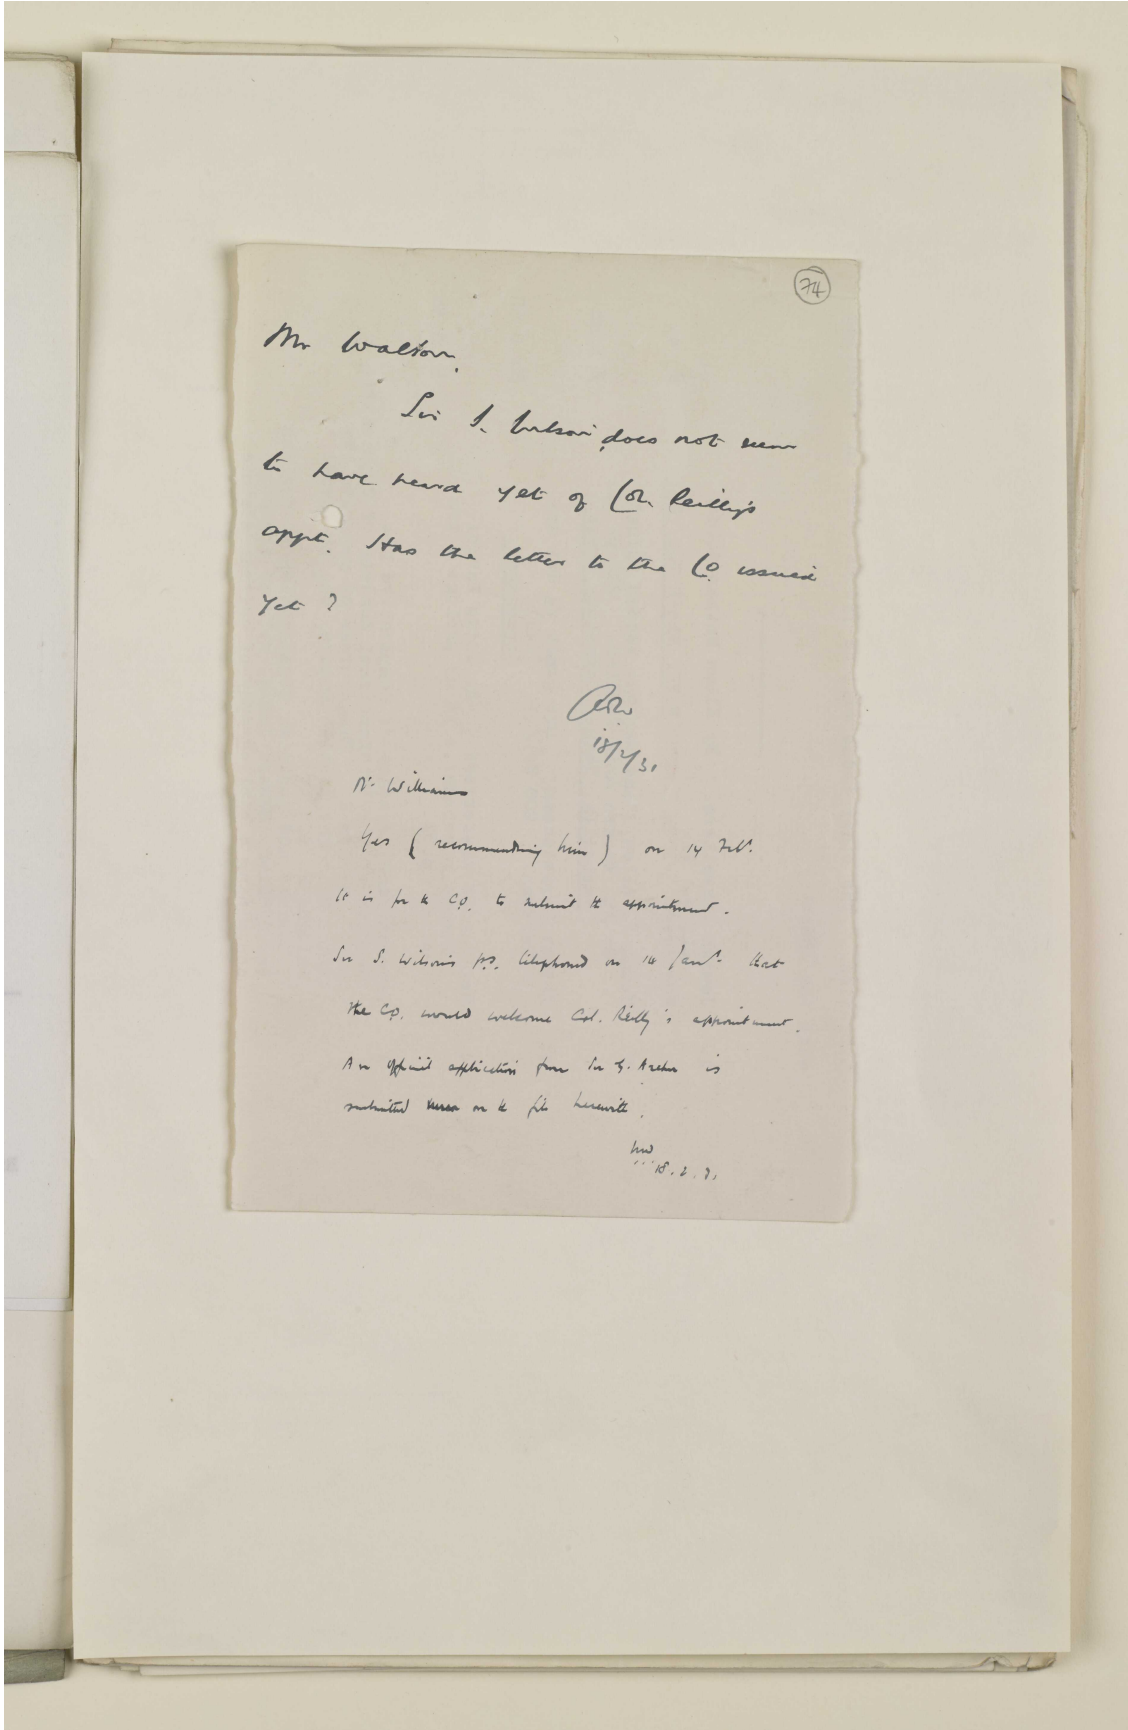 74
Mr Walton.
Sir S. Wilson does not seem
to have heard yet of Col. Reilly's
appt. Has the letter to the C.O. issued
yet?
18/2/31
Mr Williams
Yes (recommending him) on 14 Feb.
It is for the C.O. to submit the appointment.
Sir S. Wilson's P.S. telephoned on 14 Jany. that
the C.O. would welcome Col. Reilly's appointment.
An official application from Sir G. Archer is
submitted on the file herewith.
18.2.31